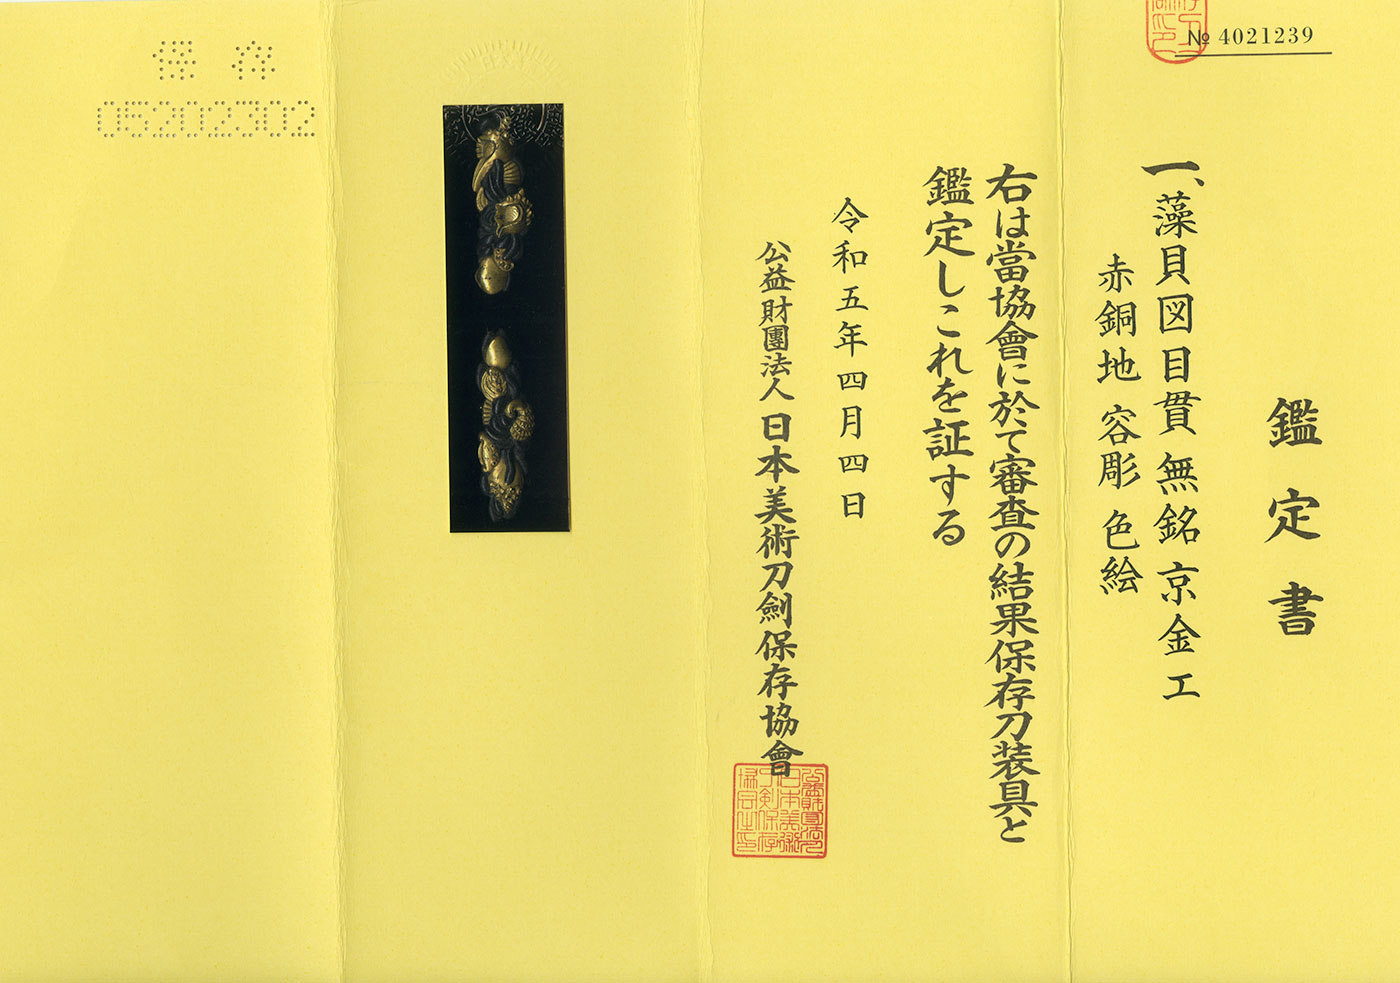 № 4021239
鑑定書
一、藻貝図目貫 無銘 京金工
赤銅地 容彫 色絵
右は當協會に於て審査の結果保存刀装具と
鑑定しこれを証する
令和五年四月四日
公益財團法人 日本美術刀劍保存協會
保存
05202302